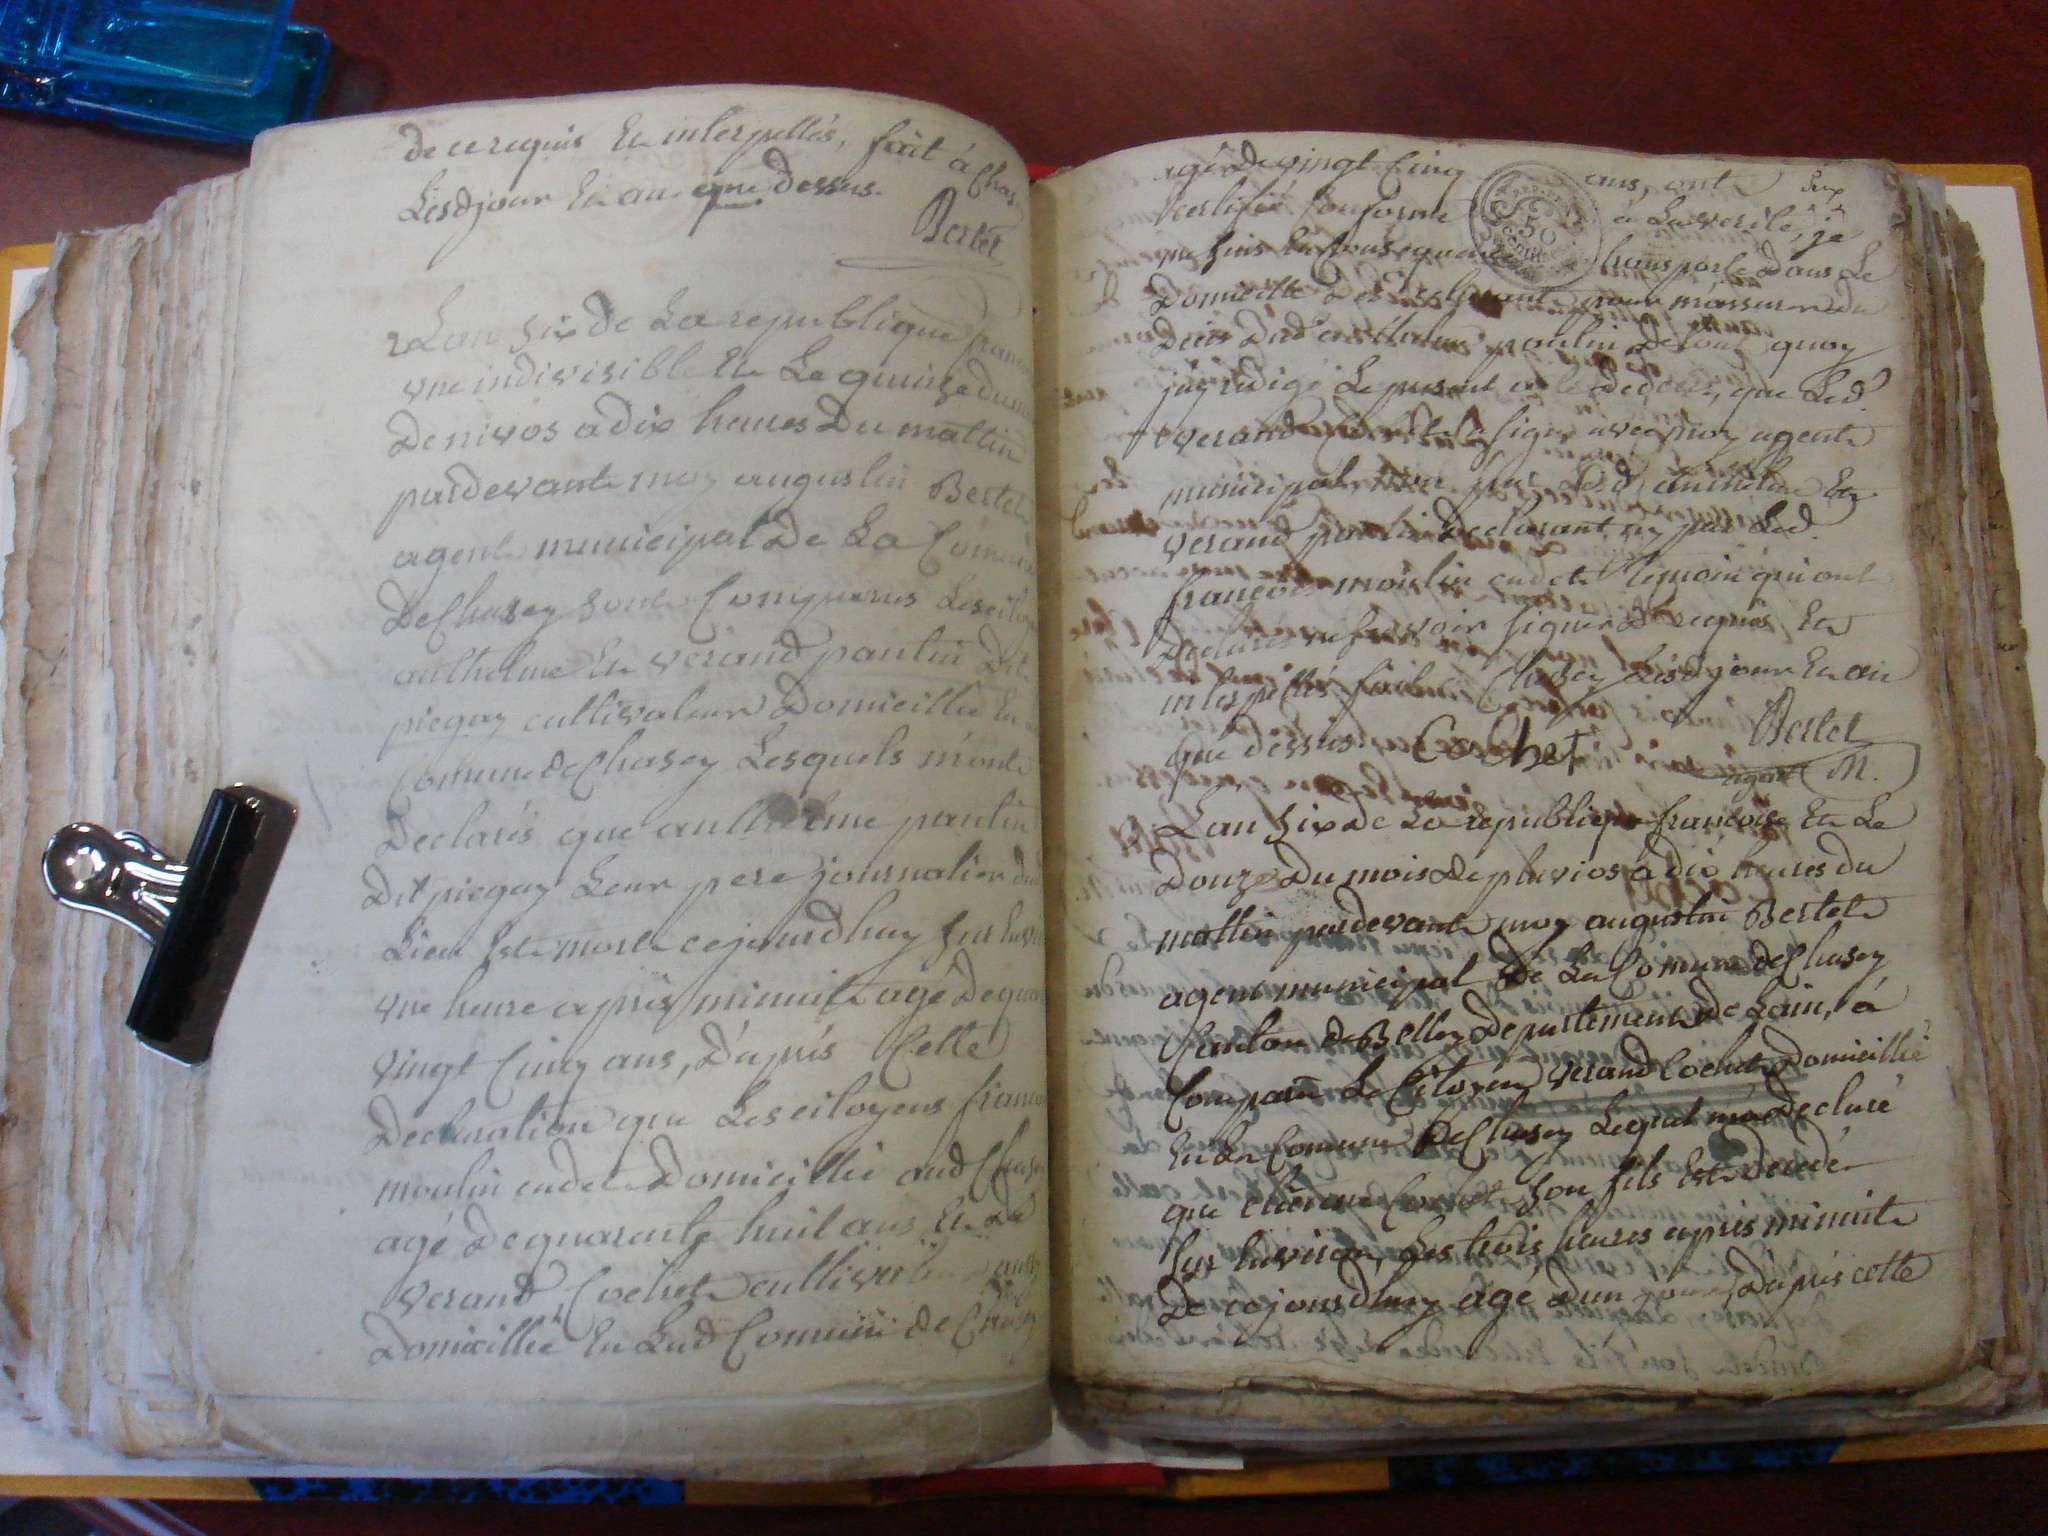 de ce requis Et interpellés, fait à Chas
Lesd jour Et an que dessus.
Bertet
Lan six de La republique fran
vne indivisible Et Le quinze du m
De nivos a dix heures Du mattin
pardevant moy augustin Bertet
agent municipal De La Comun
De Chasey sont Comparus Les cito
anthelme Et verand paulin Dit
piegay cultivateur Domicillié En
Comune de Chasey Lesquels m'ont
Declarés que anthelme paulin
Dit piegay Leur pere journalier dud
Lieu Est mort cejourdhuy sur Lenv
vne heure apres minuit agé De qua
vingt Cinq ans, D'apris Cette
Declaration que Les citoyens franco
moulin cadet Domicillié aud Chase
agé De quarante huit ans, Et Le
verand Cochet cultivateur aussy
Domicillié En Lad Comune de Chasey
agé De vingt Cinq ans, ont
Certifié Conforme à La verité, je
me suis En Consequence transporté Dans Le
Domicille Des declarants pour m'assurer du
Deces Dud anthelme paulin De tout quoy
j'ay redigé Le present acte De deces, que Led.
verand Cochet a signé avec moy agent
municipal, non par Led. anthelme Et
verand paulin Declarant, ny par Led.
francois moulin cadet temoin qui ont
Declarés ne savoir signer De requis Et
interpellés fait a Chasey Lesd jour Et an
que dessus Cochet Bertet
agent M.
Lan six De La republique francoise Et Le
Douze Du mois De pluvios a dix heures du
mattin pardevant moy augustin Bertet
agent municipal De La Comune de Chasey
Canton de Belley Departement De Lain, à
Comparu Le Citoyen verand Cochet Domicillié
En La Comune De Chasey Lequel m'a Declaré
que etienne Cochet son fils Est Decedé
sur Lenviron Les trois heures apres minuit
De cejourdhuy agé D'un jour, D'apris cette